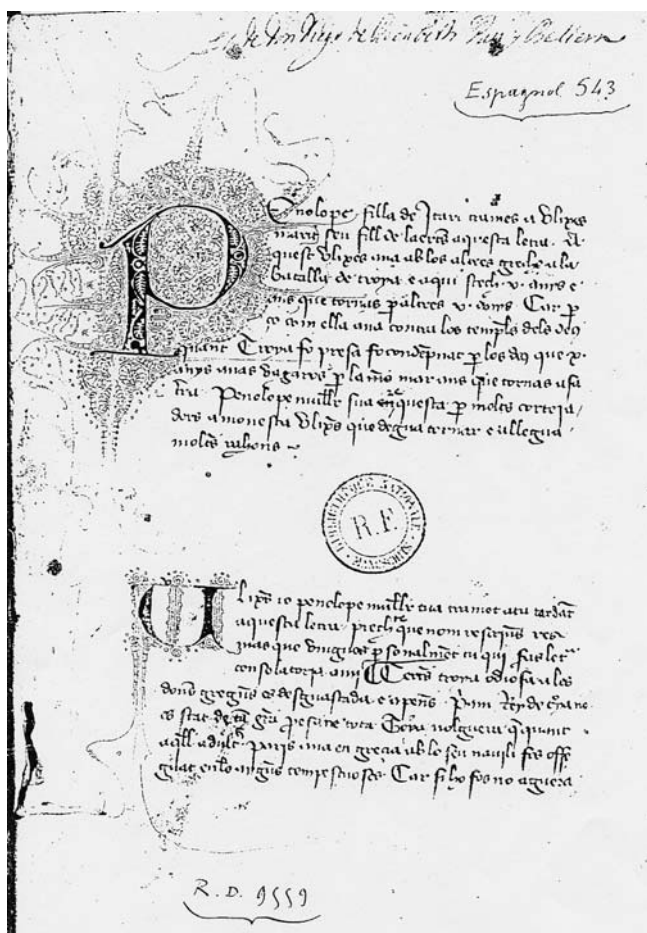 de don
Espagnol 543
Penolope filla de Icari trames a Vlixes
marit seu fill de laertes aquesta letra. A
quest Vlixes ana ab los altres grechs a la
batalla de troya e aqui stech .v. anys e
ans que tornas p altres .v. anys Car p
ço com ella ana contra los temples dels deus
quant Troya fo presa fo condempnat p los deus que .x.
anys anas vagares p la mar ans que tornas a sa
terra. Penolope muller sua enquesta p molts corteja
dors amonesta Vlixes que degua tornar e allegua
moltes rahons
BIBLIOTHEQUE NATIONALE
R.F.
Vlixes io penolope muller tua tramet a tu tardant
aquesta letra prech que nom rescriues res
mas que vingues personalment tu qui
consolatoria a mi Certes troya odiosa a les
dones gregues es desguastada e apens Priam Rey de troya ne
es stat de tan gran
aquell adulter Paris ana en grecia ab lo seu navili fos
guat en les aygues tempestuoses Car si ho fos no aguera
R. D. 9559